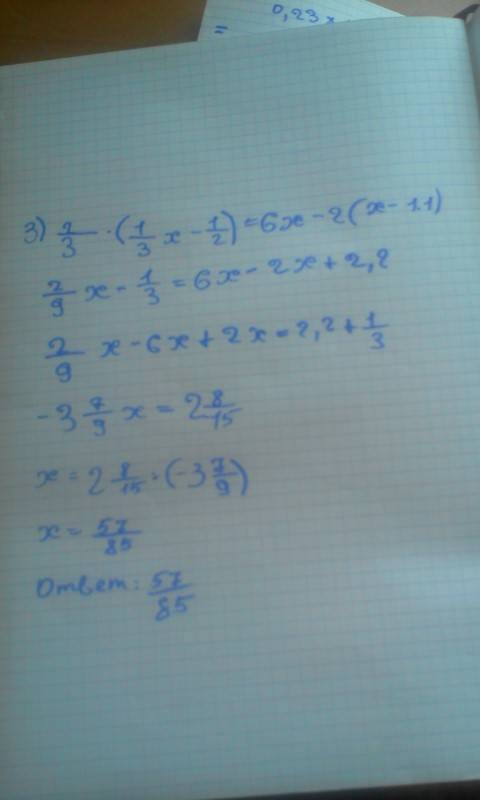 0,23 x
=
3) 2/3 · (1/3 x - 1/2) = 6x - 2(x - 1.1)
2/9 x - 1/3 = 6x - 2x + 2,2
2/9 x - 6x + 2x = 2,2 + 1/3
-3 7/9 x = 2 8/15
x = 2 8/15 : (-3 7/9)
x = 57/85
Ответ: 57/85